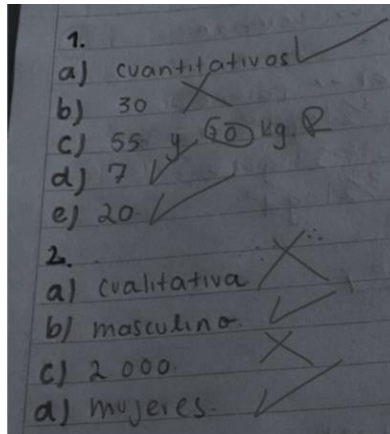 1.
a) cuantitativos
b) 30
c) 55 y 60 kg. R
d) 7
e) 20
2.
a) cualitativa
b) masculino.
c) 2 000.
d) mujeres.